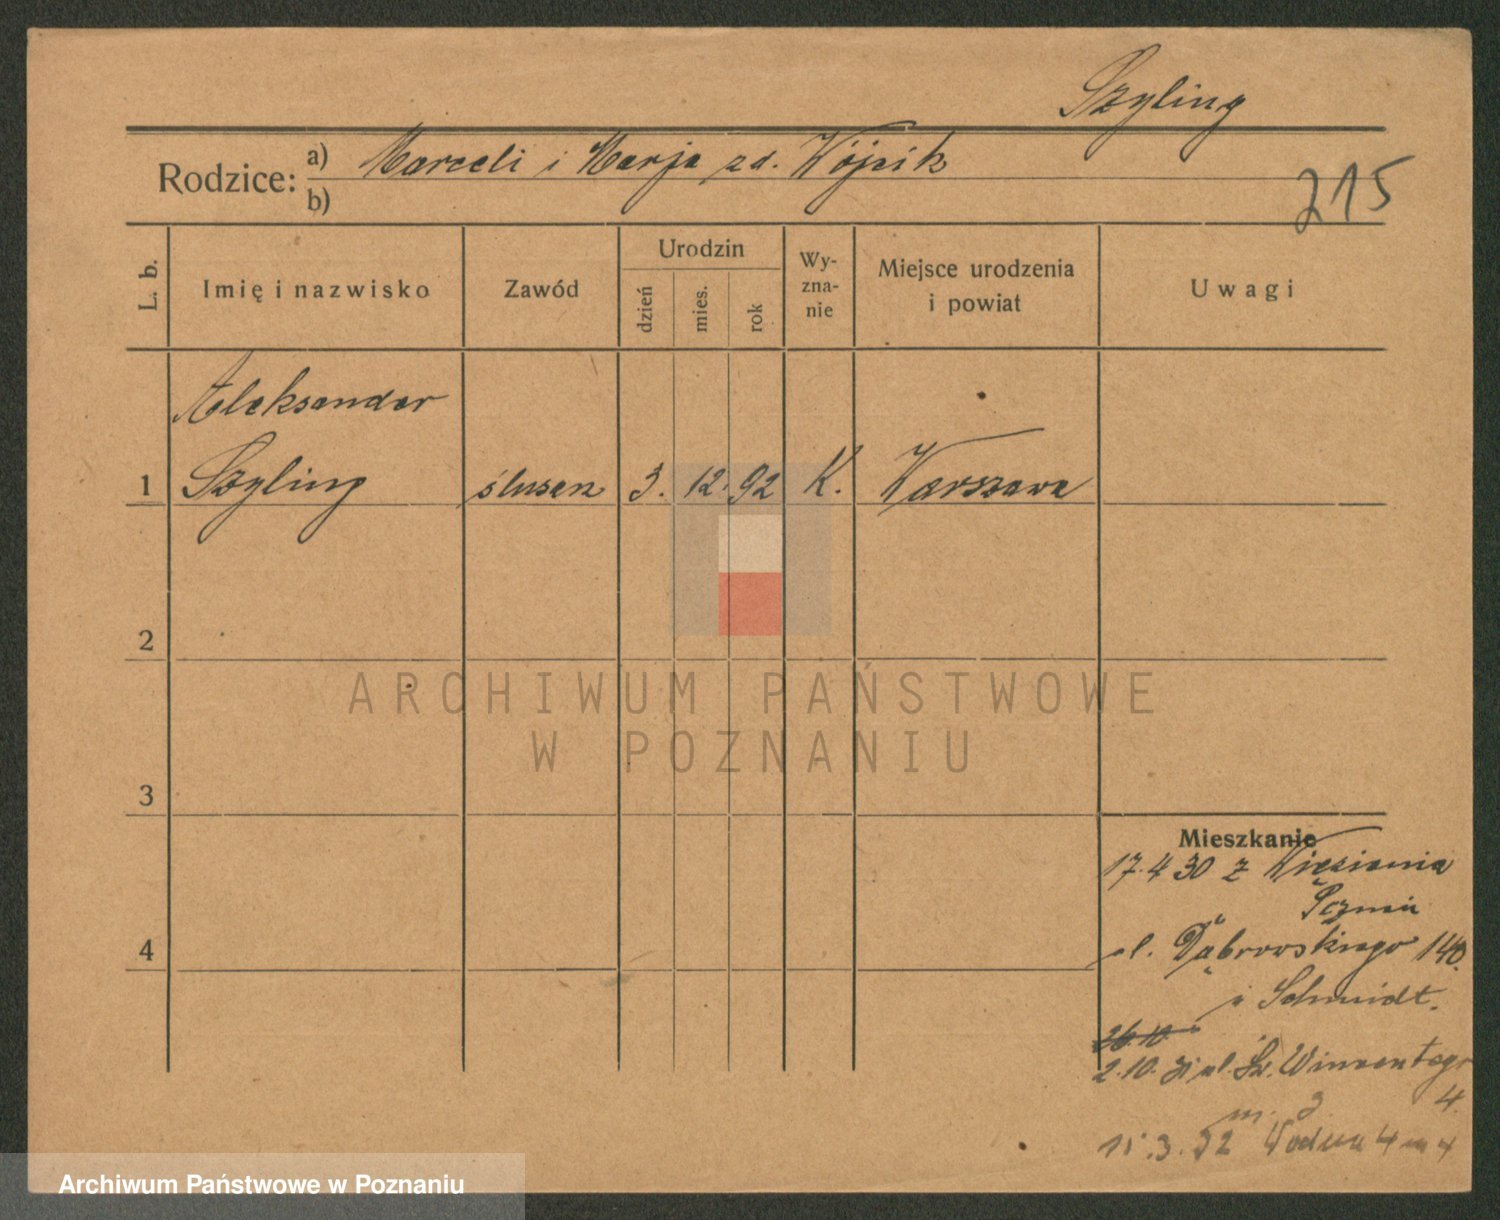 Szyling
Rodzice: a) Marceli i Marja zd. Wójcik
b)
215
L. b.
Imię i nazwisko
Zawód
Urodzin
dzień
mies.
rok
Wy-
zna-
nie
Miejsce urodzenia
i powiat
Uwagi
Aleksander
1 Szyling ślusarz 3. 12. 92 K. Warszawa
2
ARCHIWUM PAŃSTWOWE
W POZNANIU
3
Mieszkanie
17.4 30 z Więzienia
4
ul. Dąbrowskiego 140.
Schmidt.
26.10
2.10. 31 ul. Św. Wincentego
4.
m. 3
15.3.32 Wodna 4 m 4
Archiwum Państwowe w Poznaniu